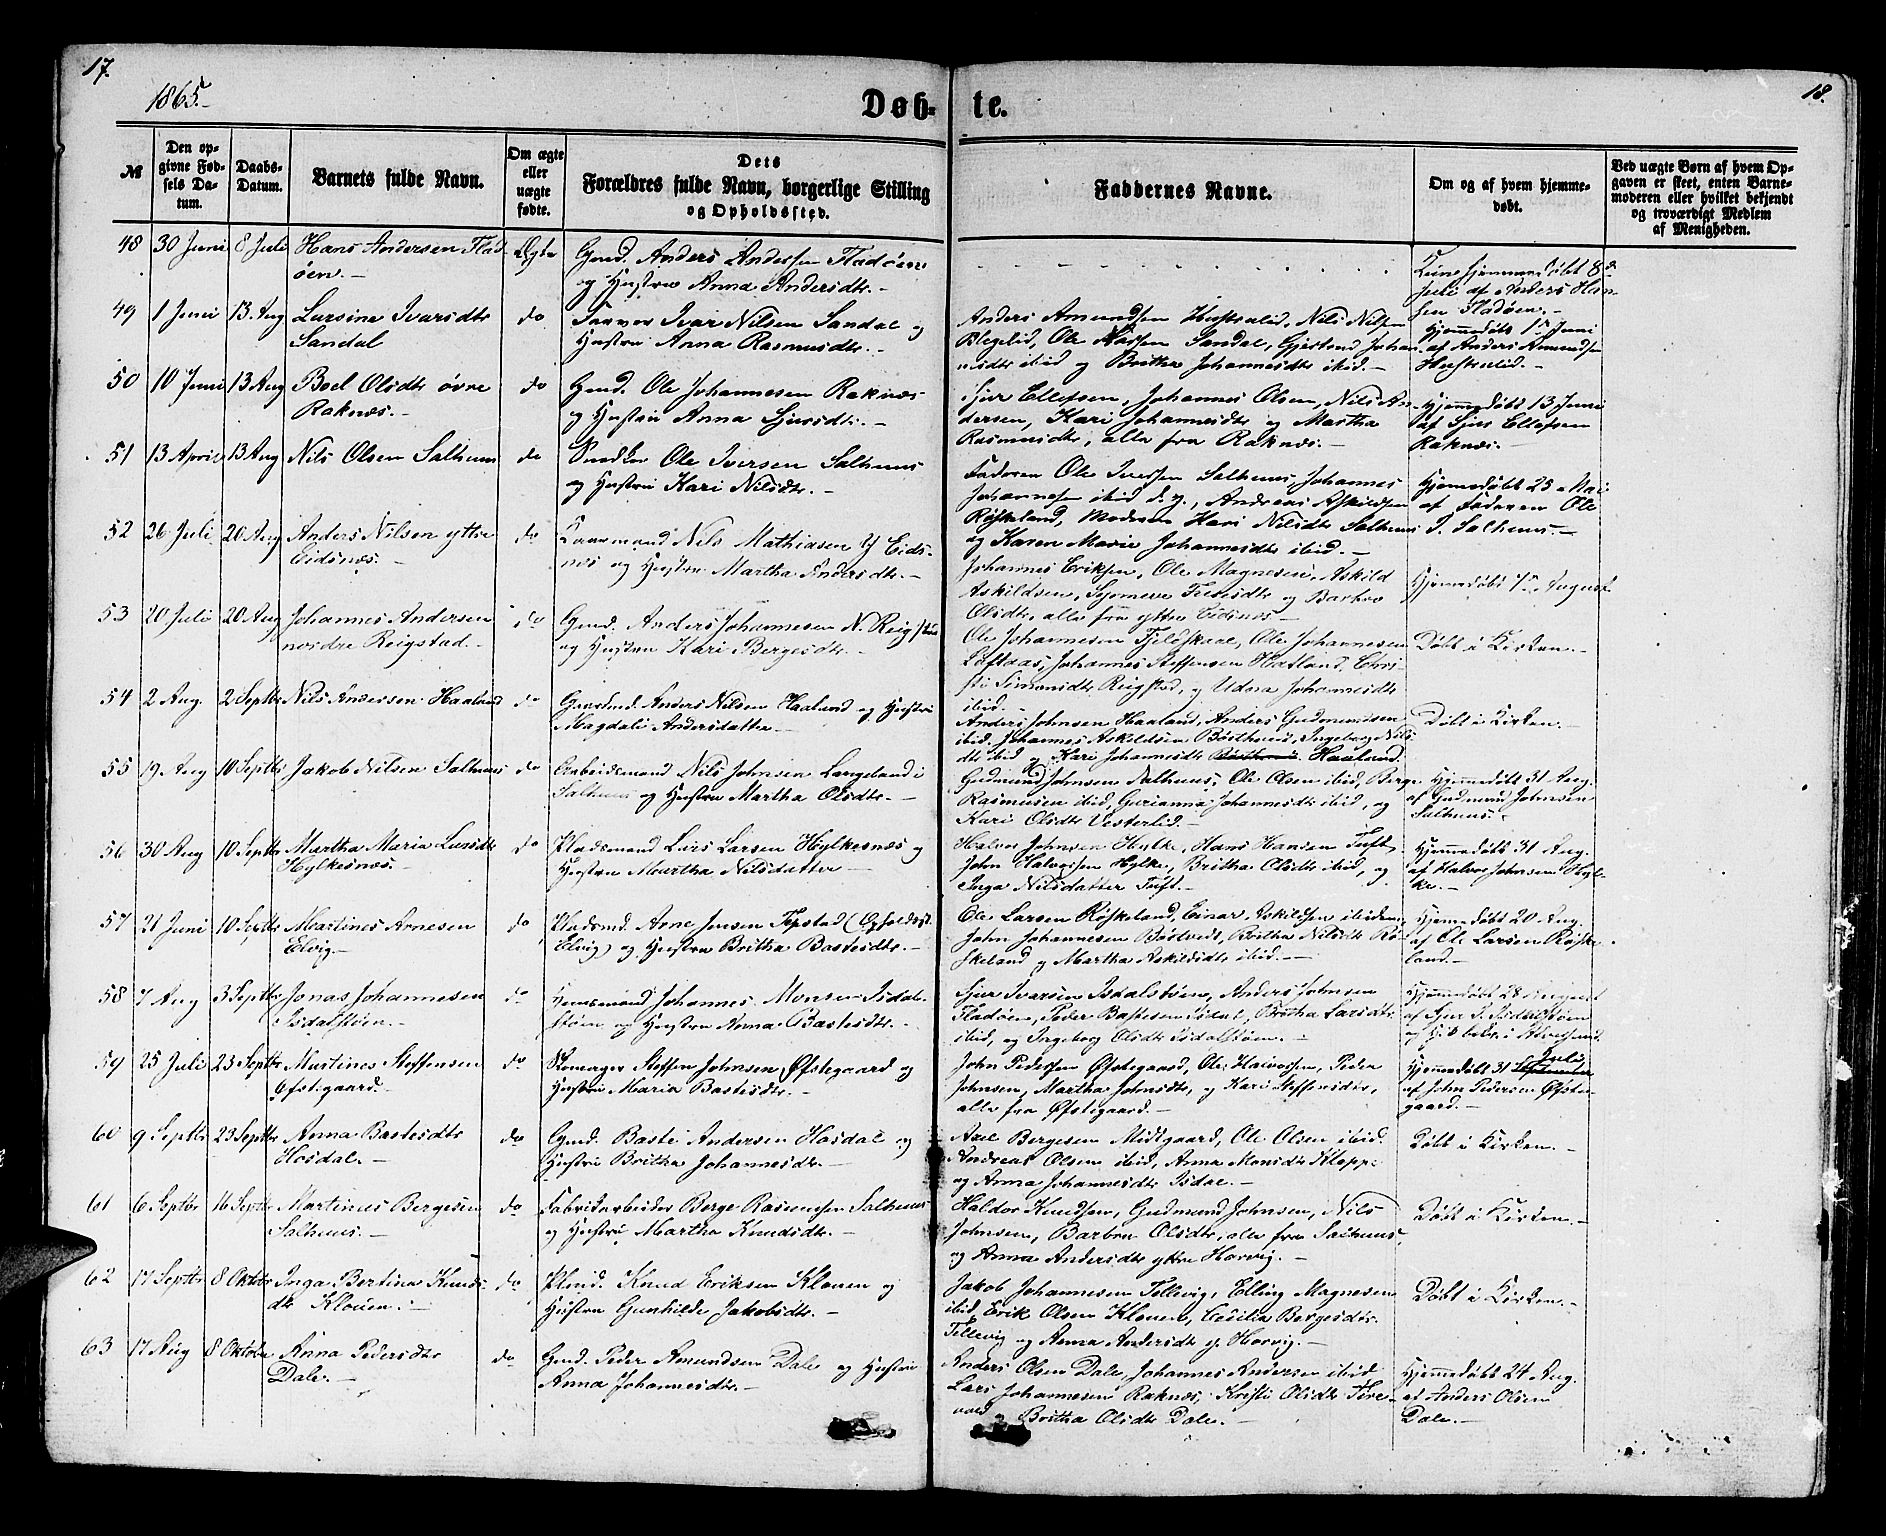 17.
18.
1865.
Døb-
te.
№
Den op-
givne Fød-
sels Da-
tum.
Daabs-
Datum.
Barnets fulde Navn.
Om ægte
eller
uægte
fødte.
Dets
Forældres fulde Navn, borgerlige Stilling
og Opholdssted.
Faddernes Navne.
Om og af hvem hjemme-
døbt.
Ved uægte Børn af hvem Op-
gaven er skeet, enten Barne-
moderen eller hvilket bekjendt
og troværdigt Medlem
af Menigheden.
48 30 Juni 8 Juli Hans Andersen Flad- Ægte Gmd. Anders Andersen Fladøen
øen.- og Hustru Anna Andersdtr.-
Hjemmedøbt 8de
Juli af Anders Han-
sen Fladøen.-
49 1 Juni 13 Aug Larsine Ivarsdtr do Ivar Nilsen Sandal og
Sandal Hustru Anna Rasmusdtr.-
Anders Amundsen Hustrulid, Nils Nilsen
Blegelid, Ole Larsen Sandal, Gjertrud Johan-
nisdtr ibid og Britha Johannesdtr ibid.-
Hjemmedøbt 1ste Juni
af Anders Amundsen
Hustrulid.-
50 10 Juni 13 Aug Boel Olsdtr øvre do Gmd. Ole Johannesen Raknæs
Raknæs.- og Hustru Anna Sjursdtr.-
Sjur Ellefsen, Johannes Olsen, Nils An-
dersen, Kari Johannesdtr og Martha
Rasmusdtr, alle fra Raknæs.-
Hjemmedøbt 13 Juni
af Sjur Ellefsen
Raknæs.-
51 13 April 13 Aug Nils Olsen Salhuus do Snedker Ole Iversen Salhuus
og Hustru Kari Nilsdtr.-
Faderen Ole Iversen Salhuus, Johannes
Johannesen ibid d. y., Andreas Askildsen
Røskeland, Moderen Kari Nilsdtr Salhuus
og Karen Marie Johannesdtr ibid.-
Hjemmedøbt 25 Mai
af Faderen Ole
I. Salhuus.-
52 26 Juli 20 Aug Anders Nilsen yttre do Kaarmand Nils Mathiasen Y Eids-
Eidsnæs.- næs og Hustru Martha Andersdtr.-
Johannes Eriksen, Ole Magnesen, Askild
Askildsen, og Barbro
Olsdtr, alle fra yttre Eidsnæs.-
Hjemmedøbt August
53 20 Juli 20 Aug Johannes Andersen do Gmd. Anders Johannesen N. Reigstad
nordre Reigstad.- og Hustru Kari Bergesdtr.-
Ole Johannesen Fjeldskaal, Ole Johannesen
Loftaas, Johannes Steffensen Hatland, Chri-
sti Simonsdtr Reigstad, og Udna Johannesdtr
ibid.-
Døbt i Kirken.-
54 2 Aug. 2 Septbr Nils Andersen Haaland do Gaardmd. Anders Nilsen Haaland og Hustru
Magdali Andersdatter.-
Anders Johnsen Haaland, Anders Gudmundsen
ibid, Johannes Askildsen, Ingeborg Nils-
dtr ibid og Kari Johannesdtr Haaland.
Døbt i Kirken.-
55 19 Aug 10 Septbr Jakob Nilsen Salhuus do Arbeidsmand Nils Johnsen Langeland i
Salhuus og Hustru Martha Olsdtr.-
Gudmund Johnsen Salhuus, Ole Olsen ibid, Berge
Rasmusen ibid, Gurianna Johannesdtr ibid, og
Kari Olsdtr Vesterlid.-
Hjemmedøbt 31 Aug.
af Gudmund Johnsen
Salhuus.-
56 30 Aug 10 Septbr Martha Maria Larsdtr do Pladsmand Lars Larsen Hylkesnæs og
Hylkesnæs.- Hustru Martha Nilsdatter.-
Halvor Johnsen Hylke, Hans Hansen Tuft,
John Halvorsen Hylke, Britha Olsdtr ibid, og
Inga Nilsdatter Tuft.-
Hjemmedøbt 31 Aug.
af Halvor Johnsen Hyl-
ke.-
57 21 Juni 10 Septbr Martines Arnesen do Pladsmd. Arne Jensen Tepstad (Opholdsst.
Elvig.- Elvig) og Hustru Britha Bastesdtr.-
Ole Larsen Røskeland, Einar Askildsen ibidem,
John Johannesen Bøstvedt, Britha Nilsdtr Rø-
skeland og Martha Askildsdtr ibid.-
Hjemmedøbt 20 Aug.
af Ole Larsen Røske-
land.-
58 7 Aug 3 Septbr Jonas Johannesen do Huusmand Johannes Monsen Isdal-
Isdalstøen.- støen og Hustru Anna Bastesdtr.-
Sjur Ivarsen Isdalstøen, Anders Johnsen
Fladøen, Peder Bastesen Isdal, Britha Larsdtr
ibid, og Ingeborg Olsdtr Isdalstøen.-
Hjemmedøbt 28 August
af Sjur I. Isdalstøen
59 25 Juli 23 Septbr Martines Steffensen do Skomager Steffen Johnsen Øfstegaard og
Øfstegaard.- Hustru Maria Bastesdtr.-
John Pedersen Øfstegaard, Ole Halvorsen, Peder
Johnsen, Martha Johnsdtr, og Kari Steffensdtr,
alle fra Øfstegaard.-
Hjemmedøbt 31 September Juli
af John Pedersen Øfste-
gaard.-
60 9 Septbr 23 Septbr Anna Bastesdtr do Gmd. Baste Andersen Hosdal og
Hosdal.- Hustru Britha Johannesdtr.-
Axel Bergesen Midtgaard, Ole Olsen ibid.
Andreas Olsen ibid, Anna Monsdtr Kloppe
og Anna Johannesdtr Isdal.-
Døbt i Kirken.-
61 6 Septbr 16 Septbr Martinus Bergesen do Fabrikarbeider Berge Rasmusen Salhuus
Salhuus.- og Hustru Martha Knudsdtr.-
Haldor Knudsen, Gudmund Johnsen, Nils
Johnsen, Barbra Olsdtr, alle fra Salhuus,
og Anna Andersdtr yttre Horvig.-
Døbt i Kirken.-
62 17 Septbr 8 Oktobr Inga Bertina Knuds- do Plmd. Knud Eriksen Klouen og
dtr Klouen.- Hustru Gunhilde Jakobsdtr.-
Jakob Johannesen Tellevig, Elling Magnesen
ibid, Erik Olsen Klouen, Cecilia Bergesdtr
Tellevig og Anna Andersdtr y. Horvig.-
Døbt i Kirken.-
63 17 Aug 8 Oktober Anna Pedersdtr do Gmd. Peder Amundsen Dale og Hustru
Dale.- Anna Johannesdtr.-
Anders Olsen Dale, Johannes Andersen ibid
Lars Johannesen Raknæs, Kristi Olsdtr
og Britha Olsdtr Dale.-
Hjemmedøbt 24 Aug.
af Anders Olsen
Dale.-